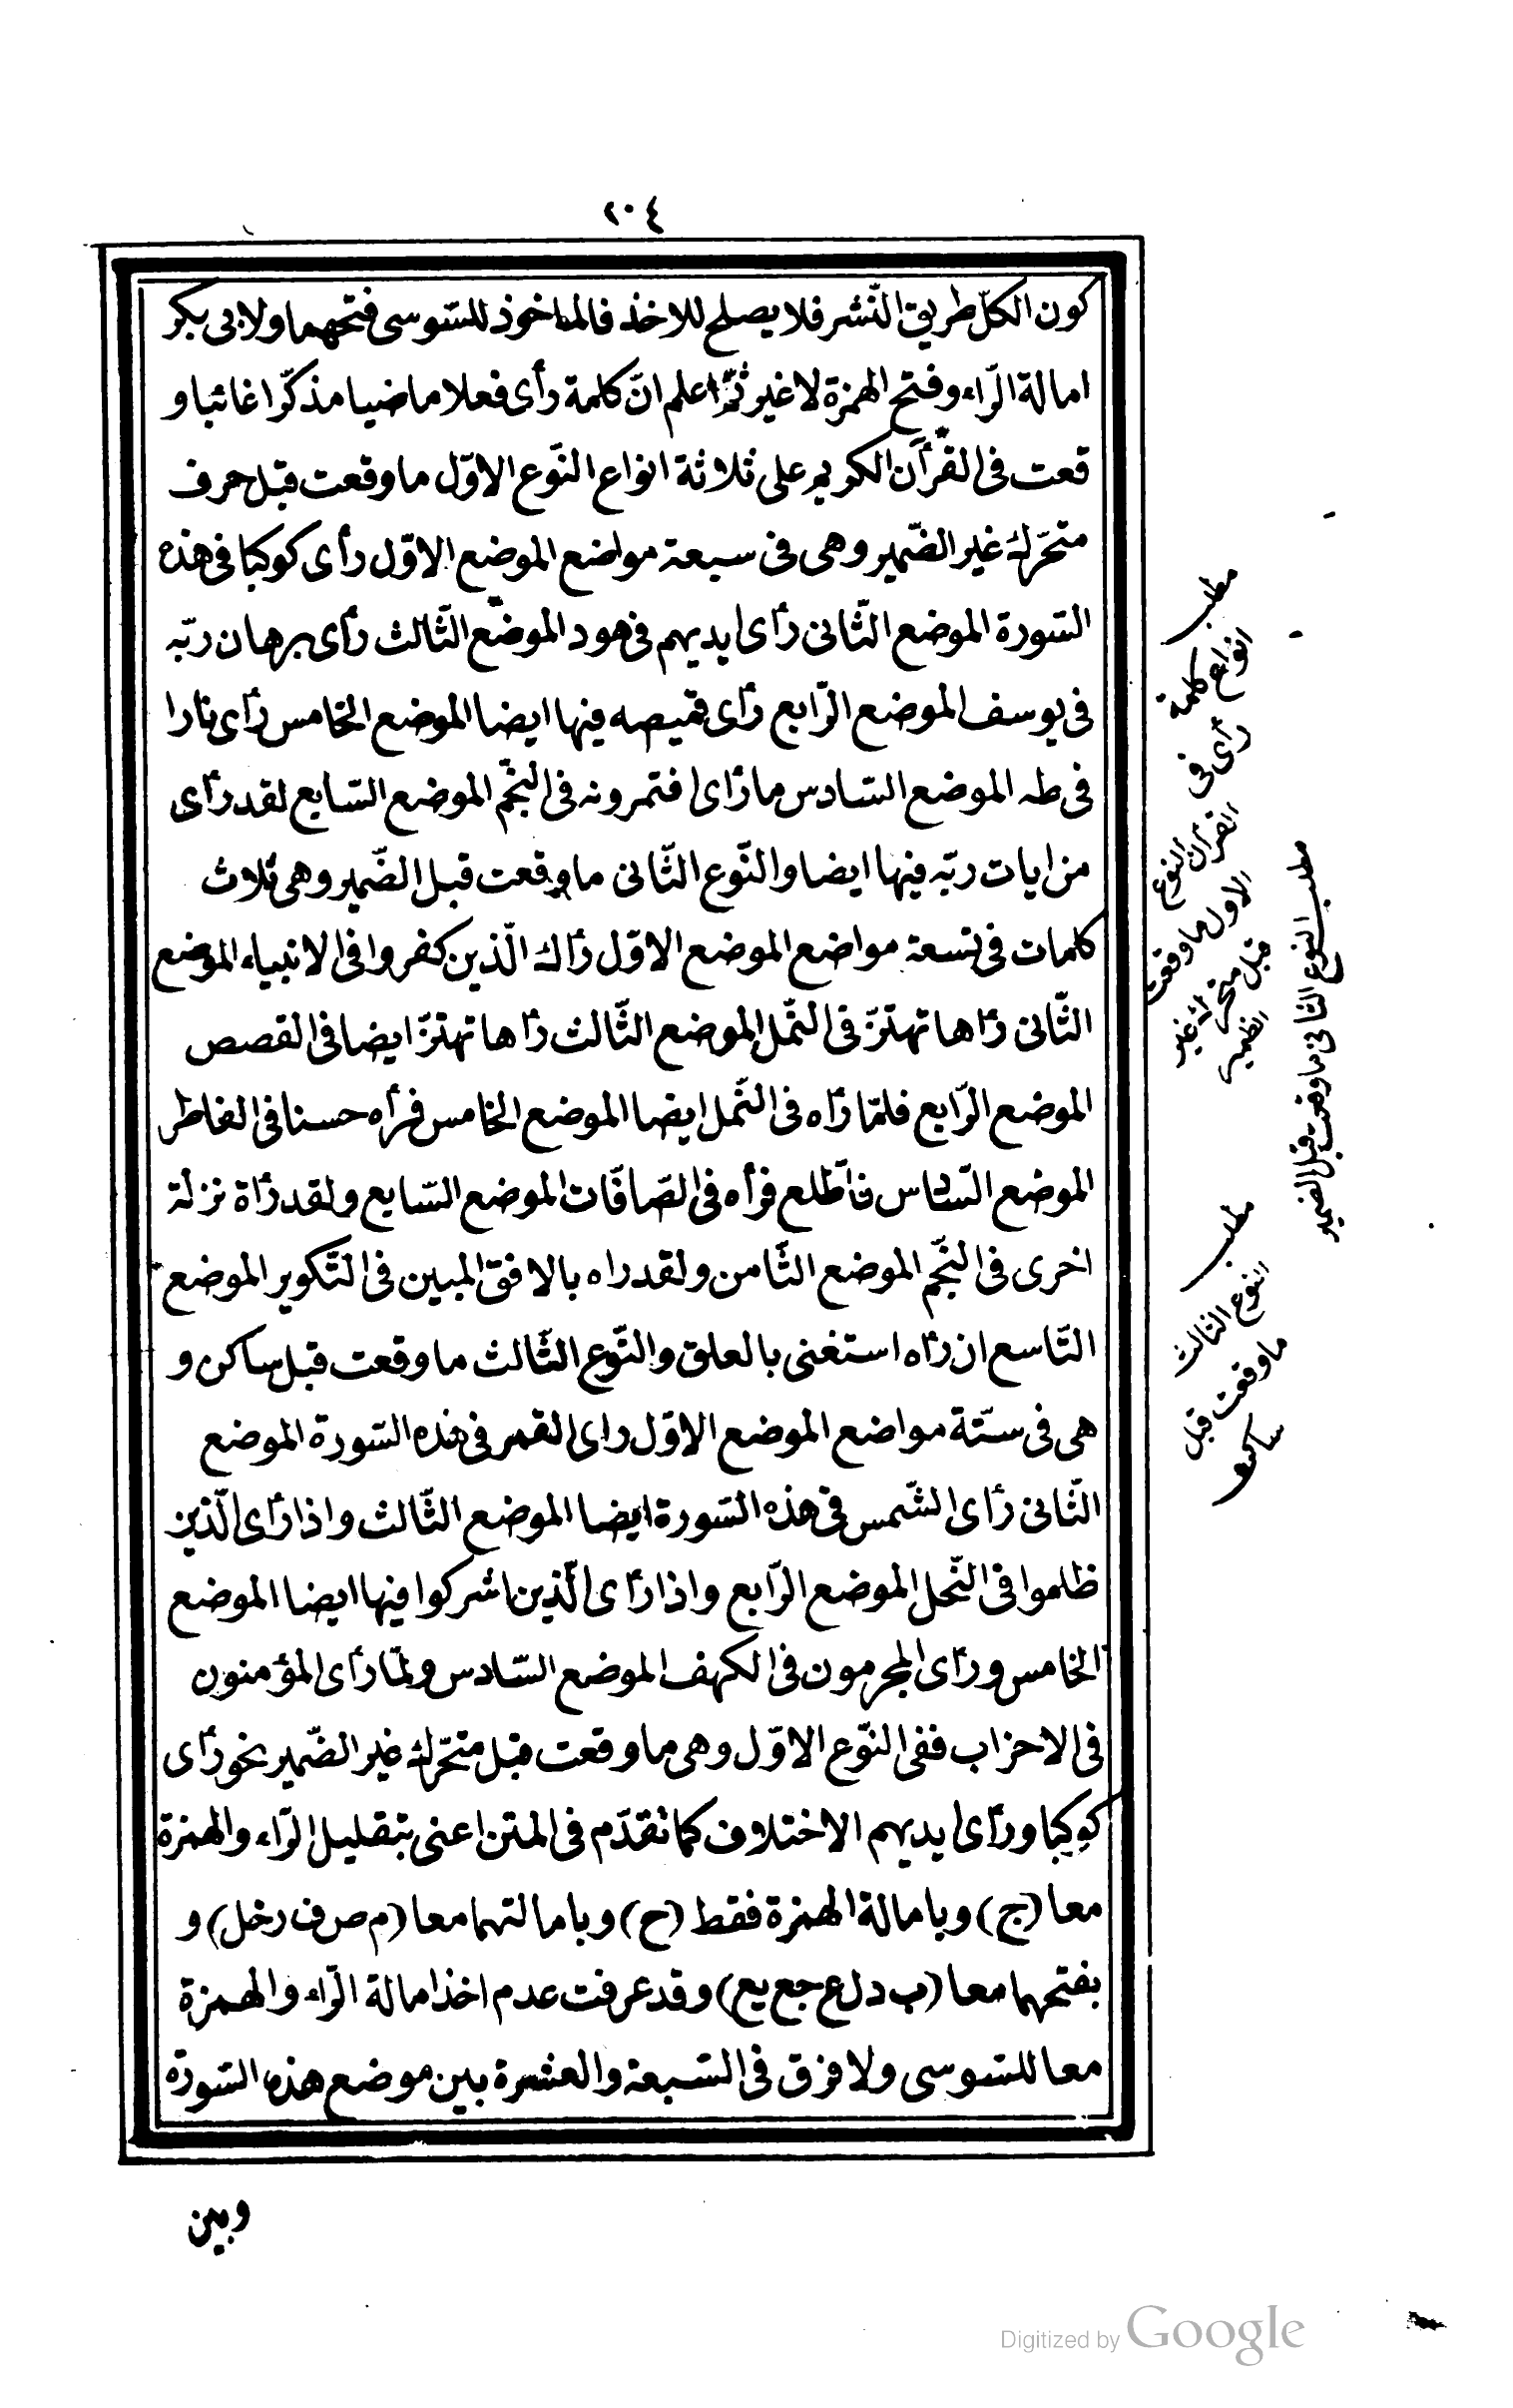 ٢٠٤
كون الكلّ طريق النّشر فلا يصلح للاخذ فالمأخوذ للسّوسى فتحهما ولابى بكر
امالة الرّاء وفتح الهمزة لا غير ثمّ اعلم انّ كلمة رأى فعلا ماضيا مذكّرا غائبا و
قعت فى القرآن الكريم على ثلاثة انواع النّوع الاوّل ما وقعت قبل حرف
متحرّك غير الضّمير وهى فى سبعة مواضع الموضع الاوّل رأى كوكبا فى هذه
السّورة الموضع الثّانى رأى ايديهم فى هود الموضع الثّالث رأى برهان ربّه
فى يوسف الموضع الرّابع رأى قميصه فيها ايضا الموضع الخامس رأى نارا
فى طه الموضع السّادس ما رأى افتمرونه فى النّجم الموضع السّابع لقد رأى
من ايات ربّه فيها ايضا والنّوع الثّانى ما وقعت قبل الضّمير وهى ثلاث
كلمات فى تسعة مواضع الموضع الاوّل رأك الّذين كفروا فى الانبياء الموضع
الثّانى رأها تهتزّ فى النّمل الموضع الثّالث رأها تهتزّ ايضا فى القصص
الموضع الرّابع فلمّا رأه فى النّمل ايضا الموضع الخامس فرأه حسنا فى الفاطر
الموضع السّادس فاطّلع فرأه فى الصّافّات الموضع السّابع ولقد رأه نزلة
اخرى فى النّجم الموضع الثّامن ولقد راه بالافق المبين فى التّكوير الموضع
التّاسع ان رأه استغنى بالعلق والنّوع الثّالث ما وقعت قبل ساكن و
هى فى ستّة مواضع الموضع الاوّل راى القمر فى هذه السّورة الموضع
الثّانى رأى الشّمس فى هذه السّورة ايضا الموضع الثّالث واذا رأى الّذين
ظلموا فى النّحل الموضع الرّابع واذا رأى الّذين اشركوا فيها ايضا الموضع
الخامس ورأى المجرمون فى الكهف الموضع السّادس ولمّا رأى المؤمنون
فى الاحزاب ففى النّوع الاوّل وهى ما وقعت قبل متحّرك غير الضّمير نحو رأى
كوكبا ورأى ايديهم الاختلاف كما تقدّم فى المتن اعنى بتقليل الرّاء والهمزة
معا (ج) وبامالة الهمزة فقط (ح) وبامالتهما معا (م ص ر ف رخل) و
بفتحهما معا (ب د ل ع جع يع) وقد عرفت عدم اخذ امالة الرّاء والهمزة
معا للسّوسى ولا فرق فى السّبعة والعشرة بين موضع هذه السّورة
وبين
مطلب
انواع كلمة
رأى فى
القرآن النوع
الاول ما وقعت
قبل متحرك غير
الضمير
مطلب النوع الثانى ما وقعت قبل الضمير
مطلب
النوع الثالث
ما وقعت قبل
ساكن
Digitized by Google